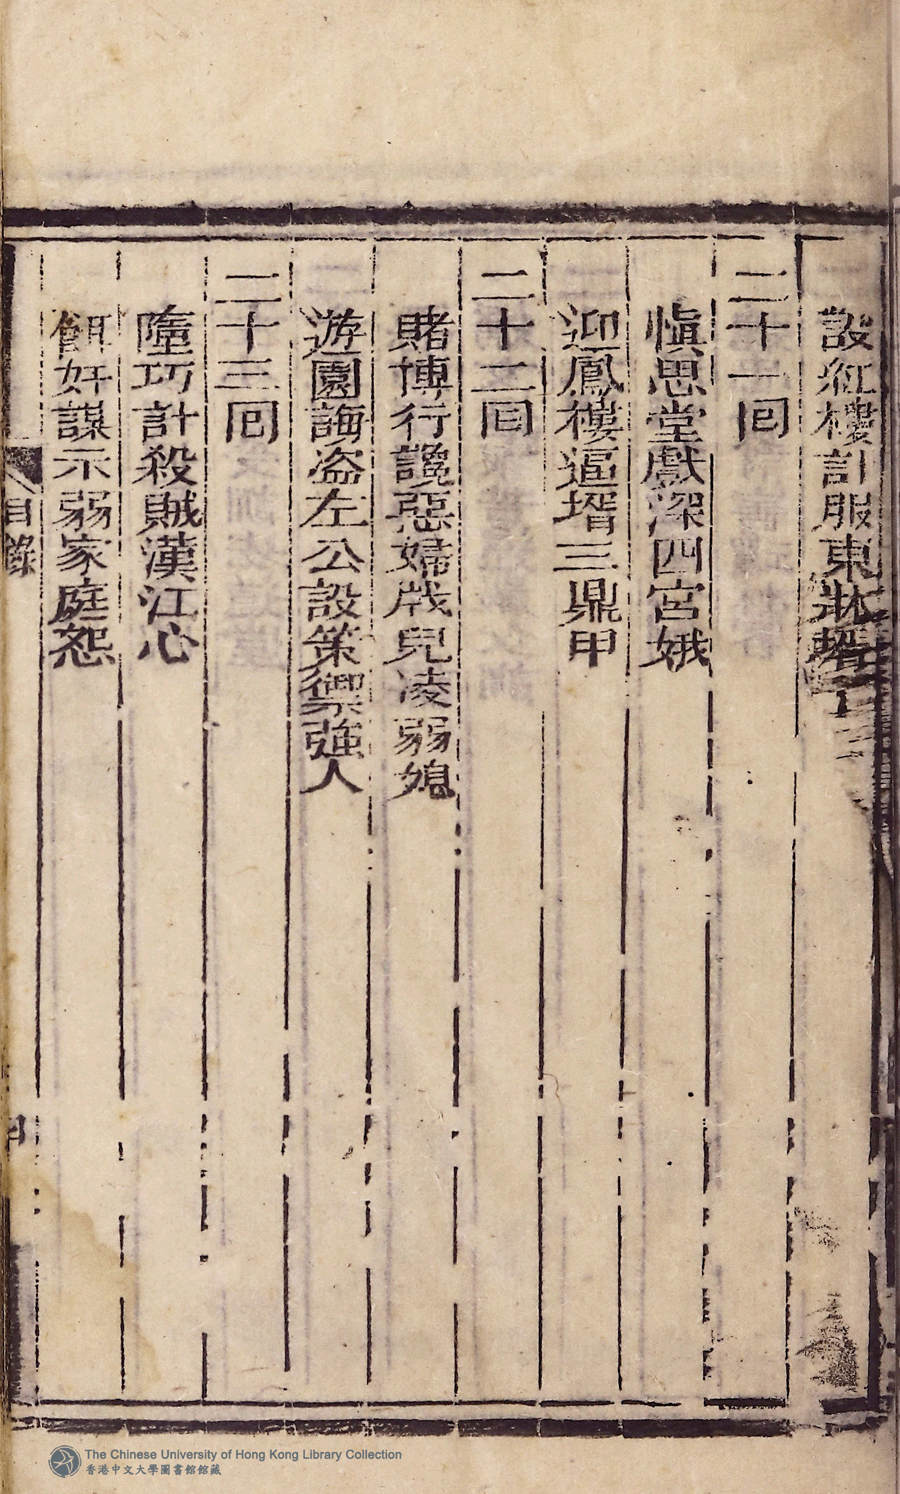 設紅樓計服東牀壻
二十一囘
愼思堂獻深四宮娥
迎鳳樓逼壻三鼎甲
二十二囘
賭博行讒惡婦戕兒凌弱媳
遊園誨盗左公設策禦強人
二十三囘
墮巧計殺賊漢江心
餌奸謀示弱家庭怨
目錄
The Chinese University of Hong Kong Library Collection
香港中文大學圖書館館藏